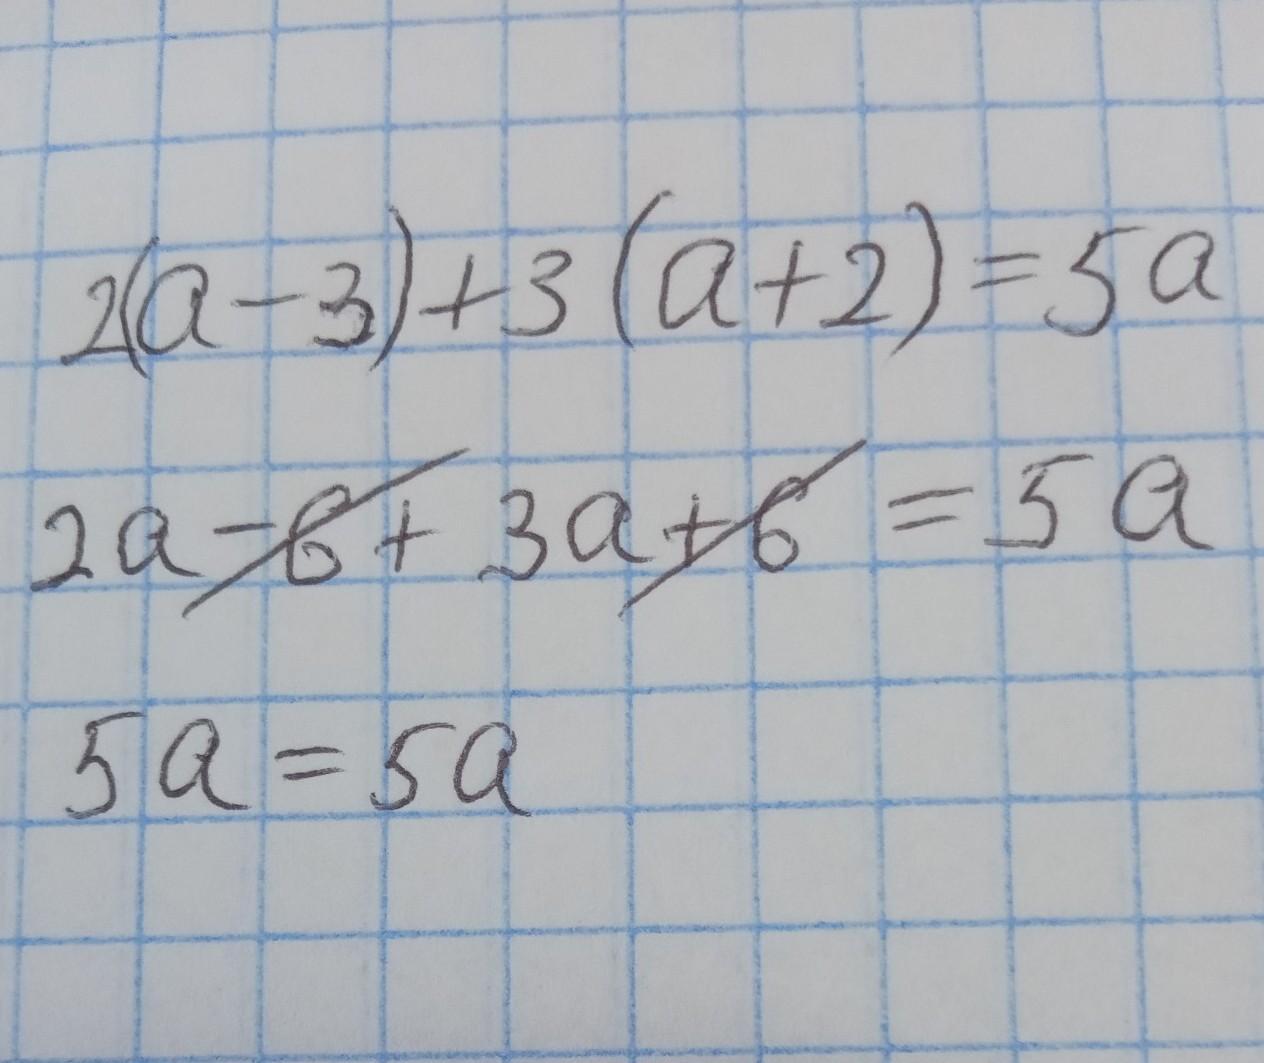 2(a-3)+3(a+2)=5a
2a-6+3a+6=5a
5a=5a